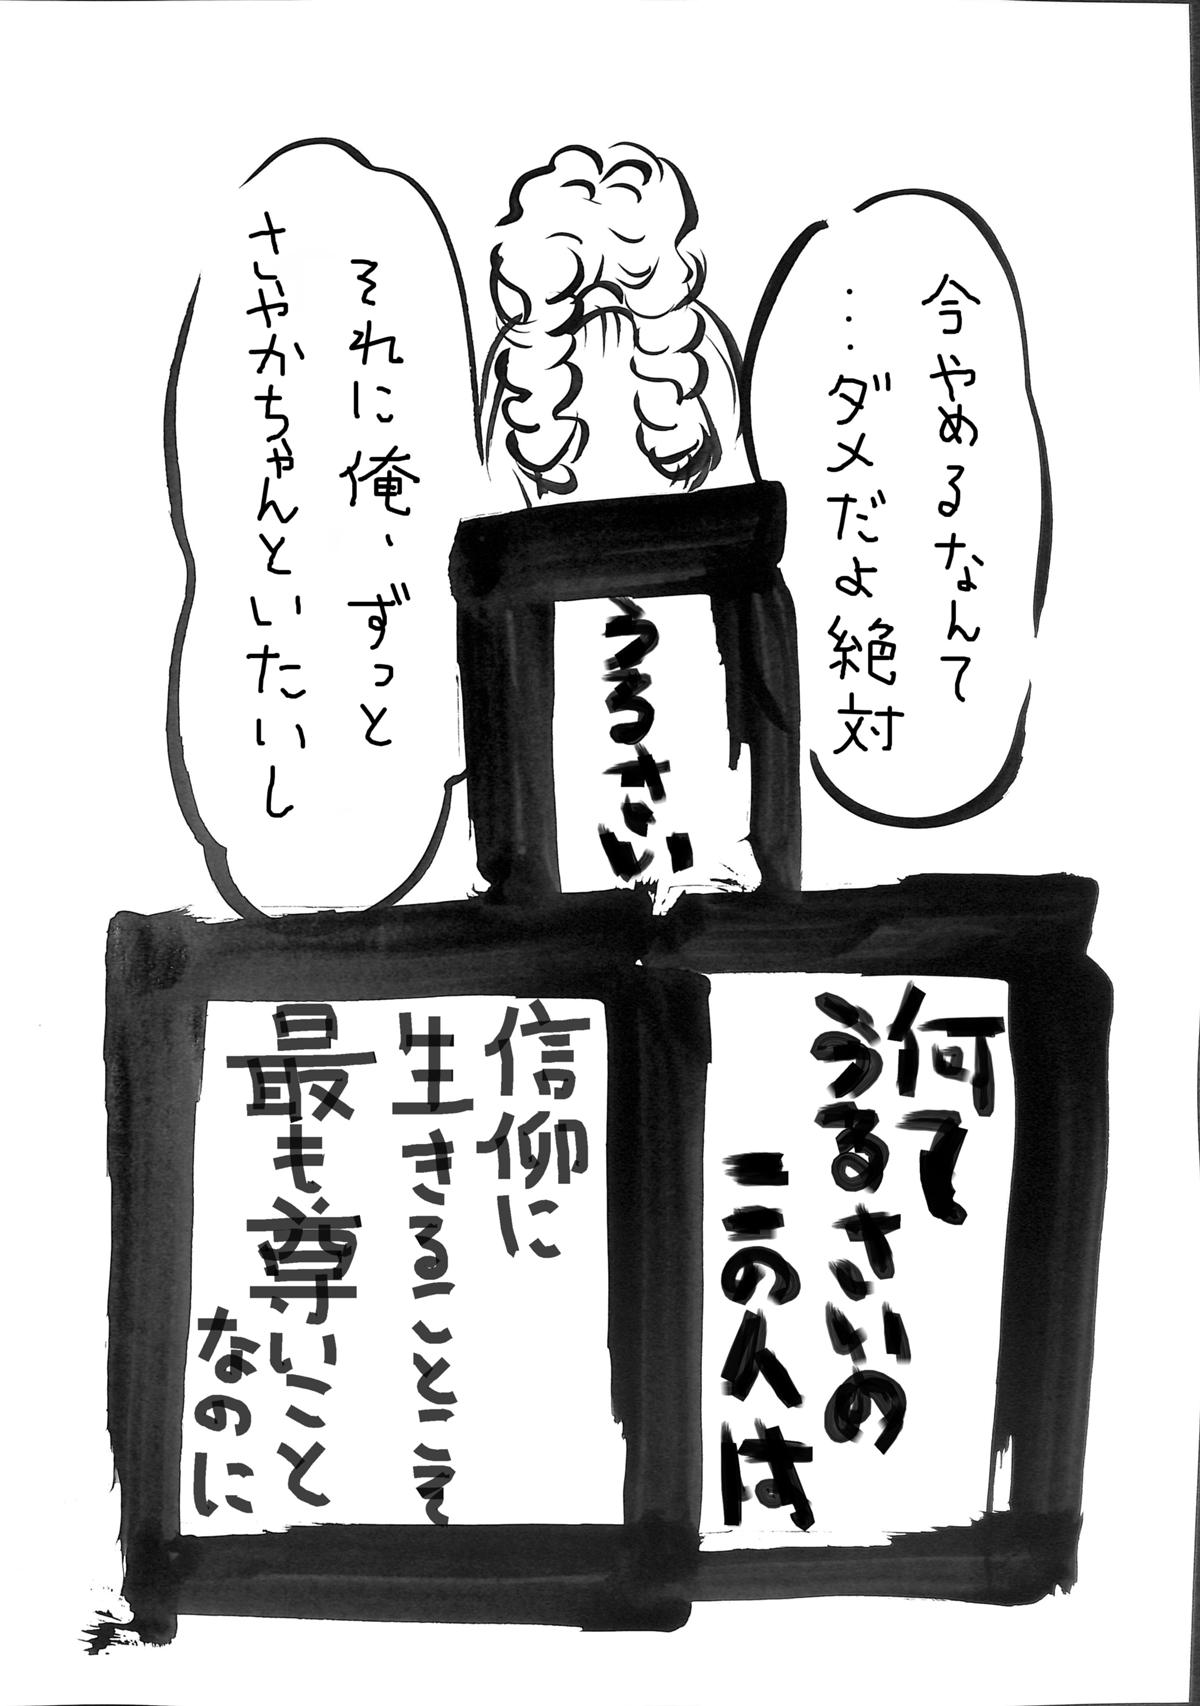 今やめるなんて
…ダメだよ絶対
それに俺、ずっと
さやかちゃんといたいし
うるさい
何て
うるさいの
この人は
信仰に
生きることこそ
最も尊いこと
なのに